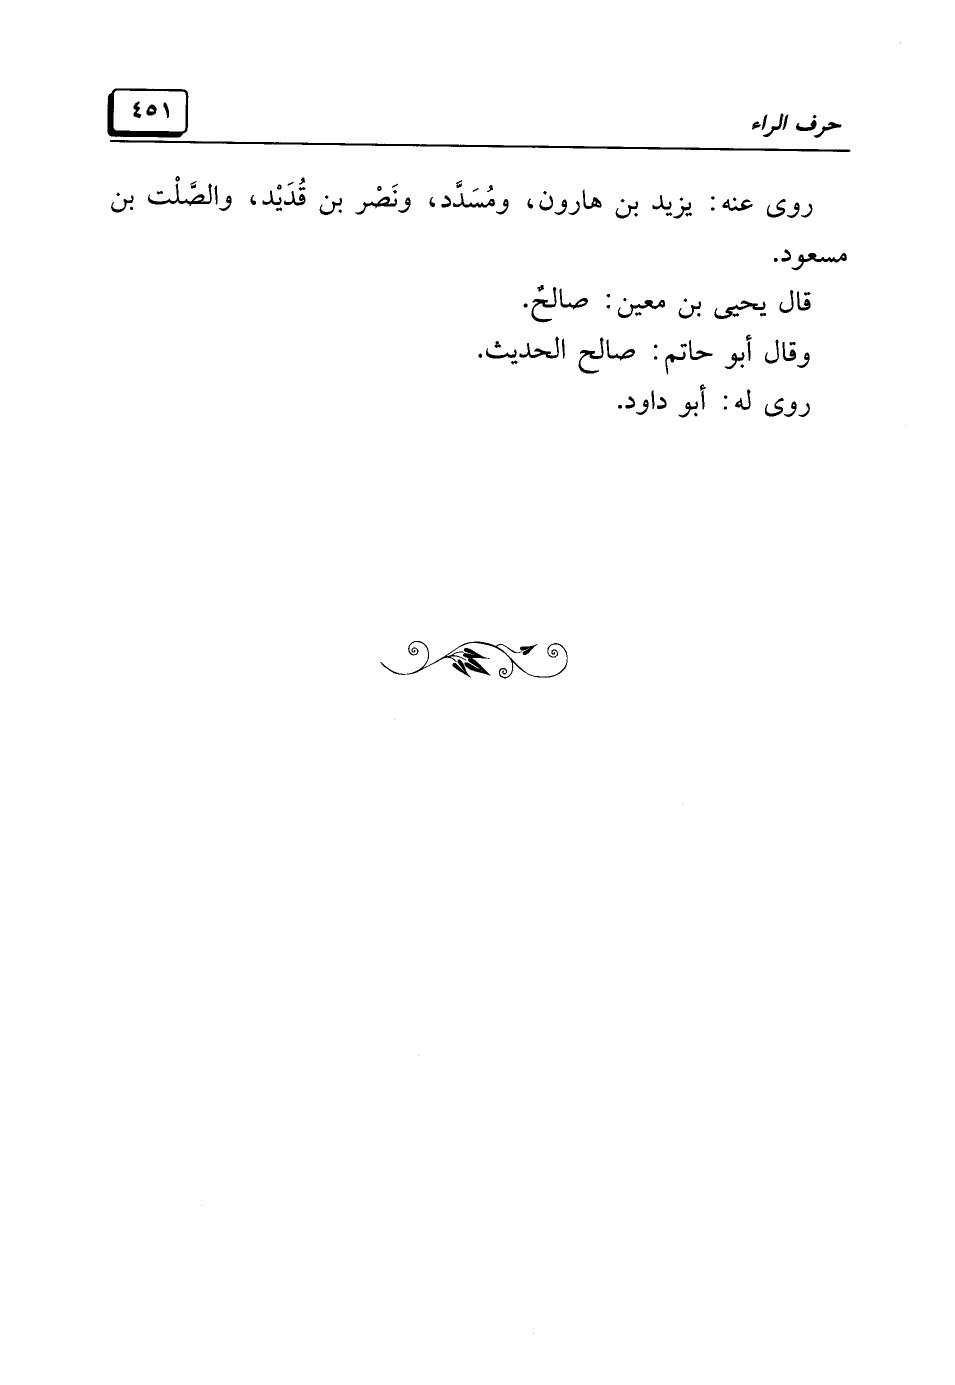 حرف الراء
٤٥١
روى عنه: يزيد بن هارون، ومُسَدَّد، ونَصْر بن قُدَيْد، والصَّلْت بن
مسعود.
قال يحيى بن معين: صالحٌ.
وقال أبو حاتم: صالح الحديث.
روى له: أبو داود.